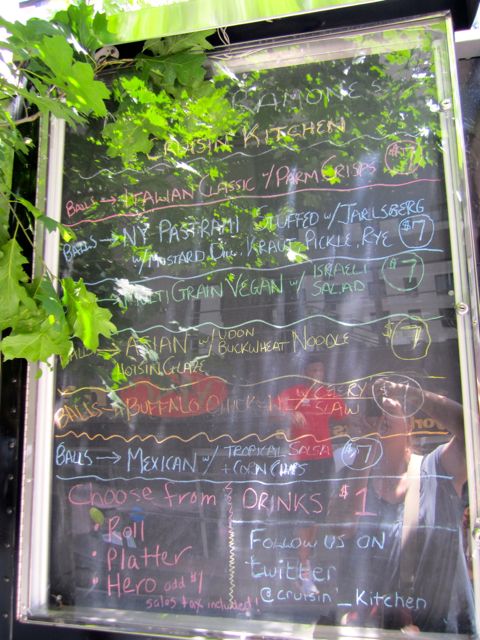 RAMONE'S
CRUISIN' KITCHEN
BALLS → ITALIAN CLASSIC w/ PARM CRISPS $7
BALLS → NY PASTRAMI STUFFED w/ JARLSBERG
w/ MUSTARD DILL, KRAUT, PICKLE, RYE $7
GRAIN VEGAN w/ ISRAELI SALAD $7
BALLS → ASIAN w/ UDON BUCKWHEAT NOODLE $7
HOISIN GLAZE
BALLS → BUFFALO CHICKEN w/ CELERY SLAW
BALLS → MEXICAN w/ TROPICAL SALSA + CORN CHIPS $7
Choose from
• Roll
• Platter
• Hero add $1
sales tax included!
DRINKS $1
FOLLOW US ON
twitter
@cruisin'_Kitchen